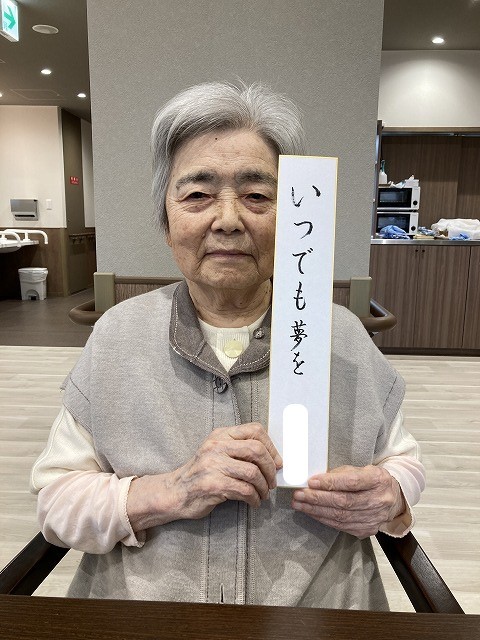 いつでも夢を